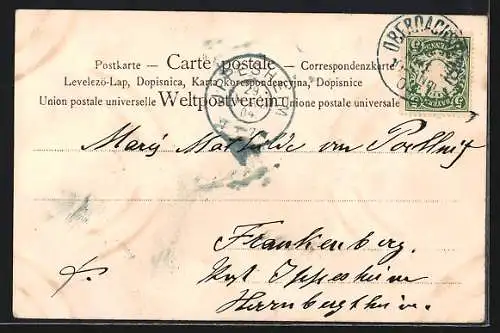 Postkarte – Carte postale – Correspondenzkarte
Levelezö-Lap, Dopisnica, Karta korespondencyjna, Dopisnice
Union postale universelle Weltpostverein Unione postale universale
IPPESHEIM
04
BAYERN
Mathilde von
Frankenberg.
Post Ippesheim
Herrnbergtheim.